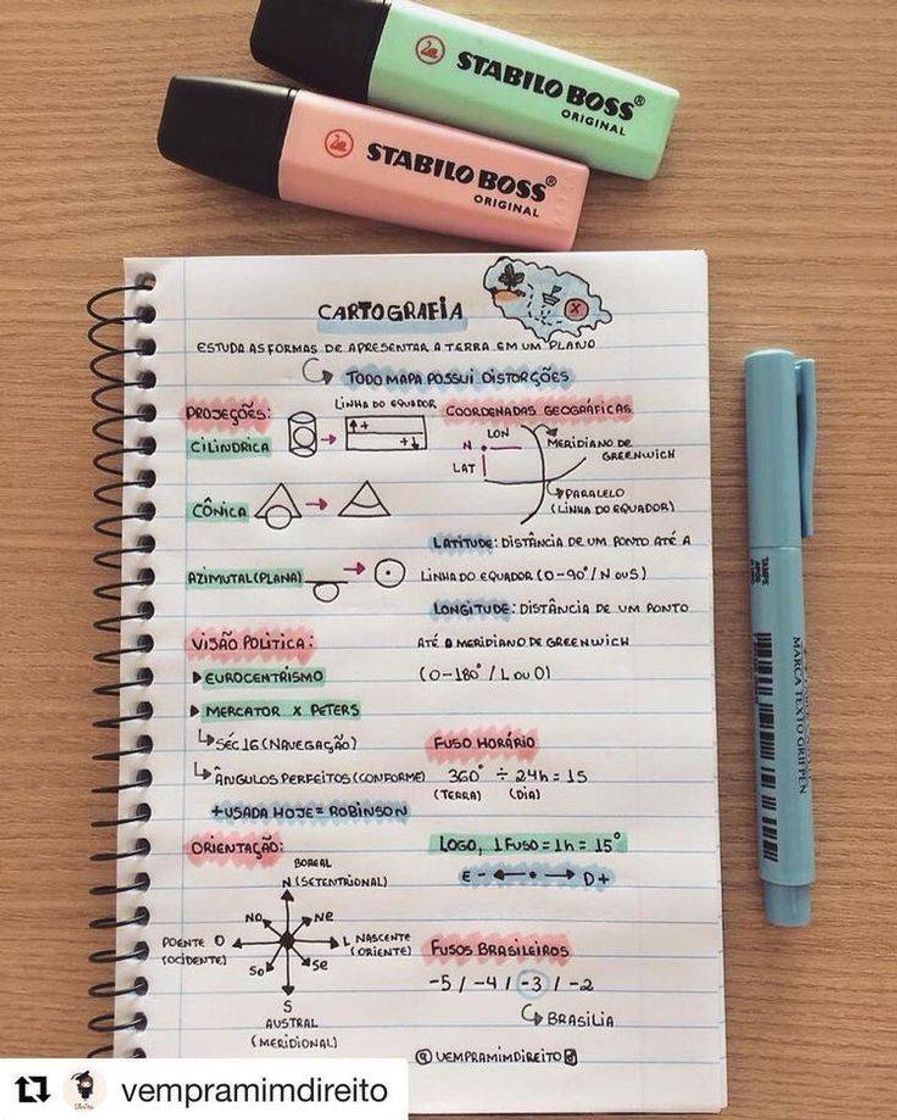 STABILO BOSS®
ORIGINAL
STABILO BOSS®
ORIGINAL
CARTOGRAFIA
X
ESTUDA AS FORMAS DE APRESENTAR A TERRA EM UM PLANO
TODO MAPA POSSUI DISTORÇÕES
PROJEÇÕES:
LINHA DO EQUADOR
CILINDRICA
+
+
CÔNICA
AZIMUTAL (PLANA)
COORDENADAS GEOGRÁFICAS
LON
N
LAT
MERIDIANO DE
GREENWICH
PARALELO
(LINHA DO EQUADOR)
LATITUDE: DISTÂNCIA DE UM PONTO ATÉ A
LINHA DO EQUADOR (0-90°/N OU S)
LONGITUDE: DISTÂNCIA DE UM PONTO
ATÉ O MERIDIANO DE GREENWICH
(0-180°/L OU O)
VISÃO POLITICA:
EUROCENTRISMO
MERCATOR X PETERS
SÉC 16 (NAVEGAÇÃO)
ÂNGULOS PERFEITOS (CONFORME)
+USADA HOJE = ROBINSON
FUSO HORÁRIO
360° ÷ 24h = 15
(TERRA) (DIA)
LOGO, 1 FUSO = 1h = 15°
E - D +
ORIENTAÇÃO:
BOREAL
N (SETENTRIONAL)
NO NE
POENTE O
(OCIDENTE)
L NASCENTE
(ORIENTE)
SO SE
S
AUSTRAL
(MERIDIONAL)
FUSOS BRASILEIROS
-5 / -4 / -3 / -2
BRASILIA
@VEMPRAMIMDIREITO
MARCA TEXTO GRIFPEN
vempramimdireito